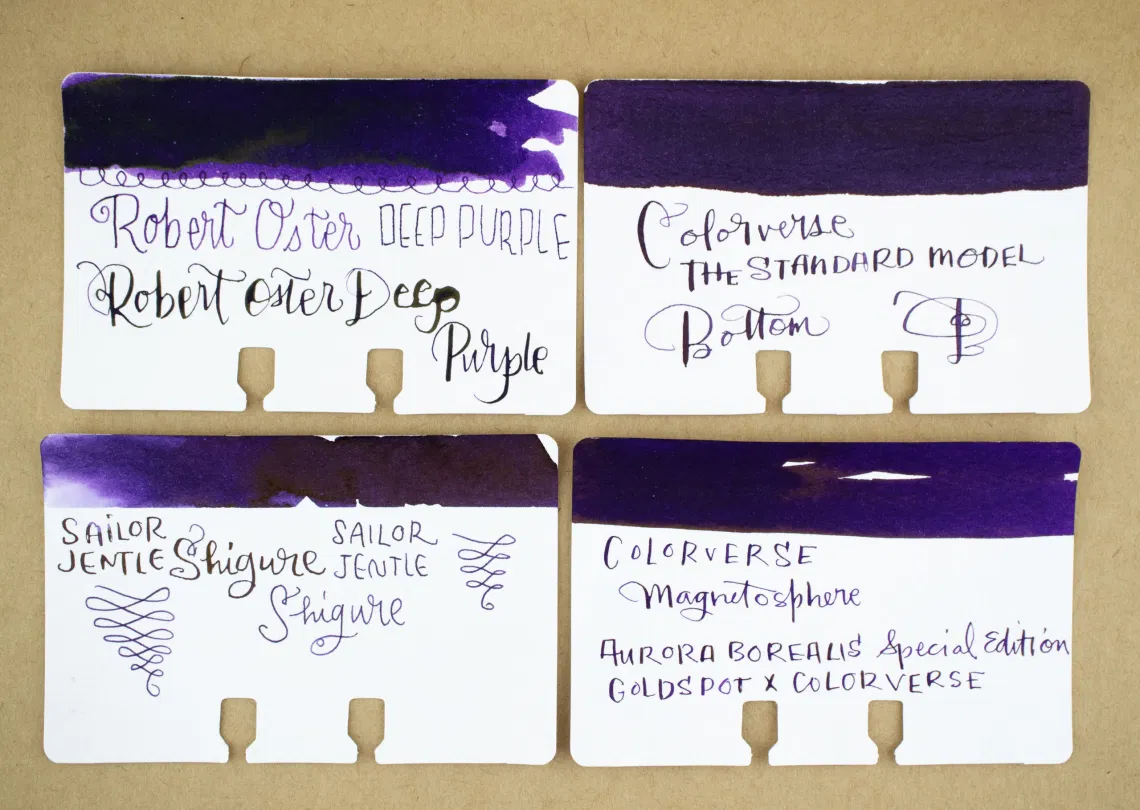 Robert Oster DEEP PURPLE
Robert Oster Deep
Purple
Colorverse
THE STANDARD MODEL
Bottom B
SAILOR
JENTLE Shigure
SAILOR
JENTLE
Shigure
COLORVERSE
Magnetosphere
AURORA BOREALIS Special Edition
GOLDSPOT X COLORVERSE